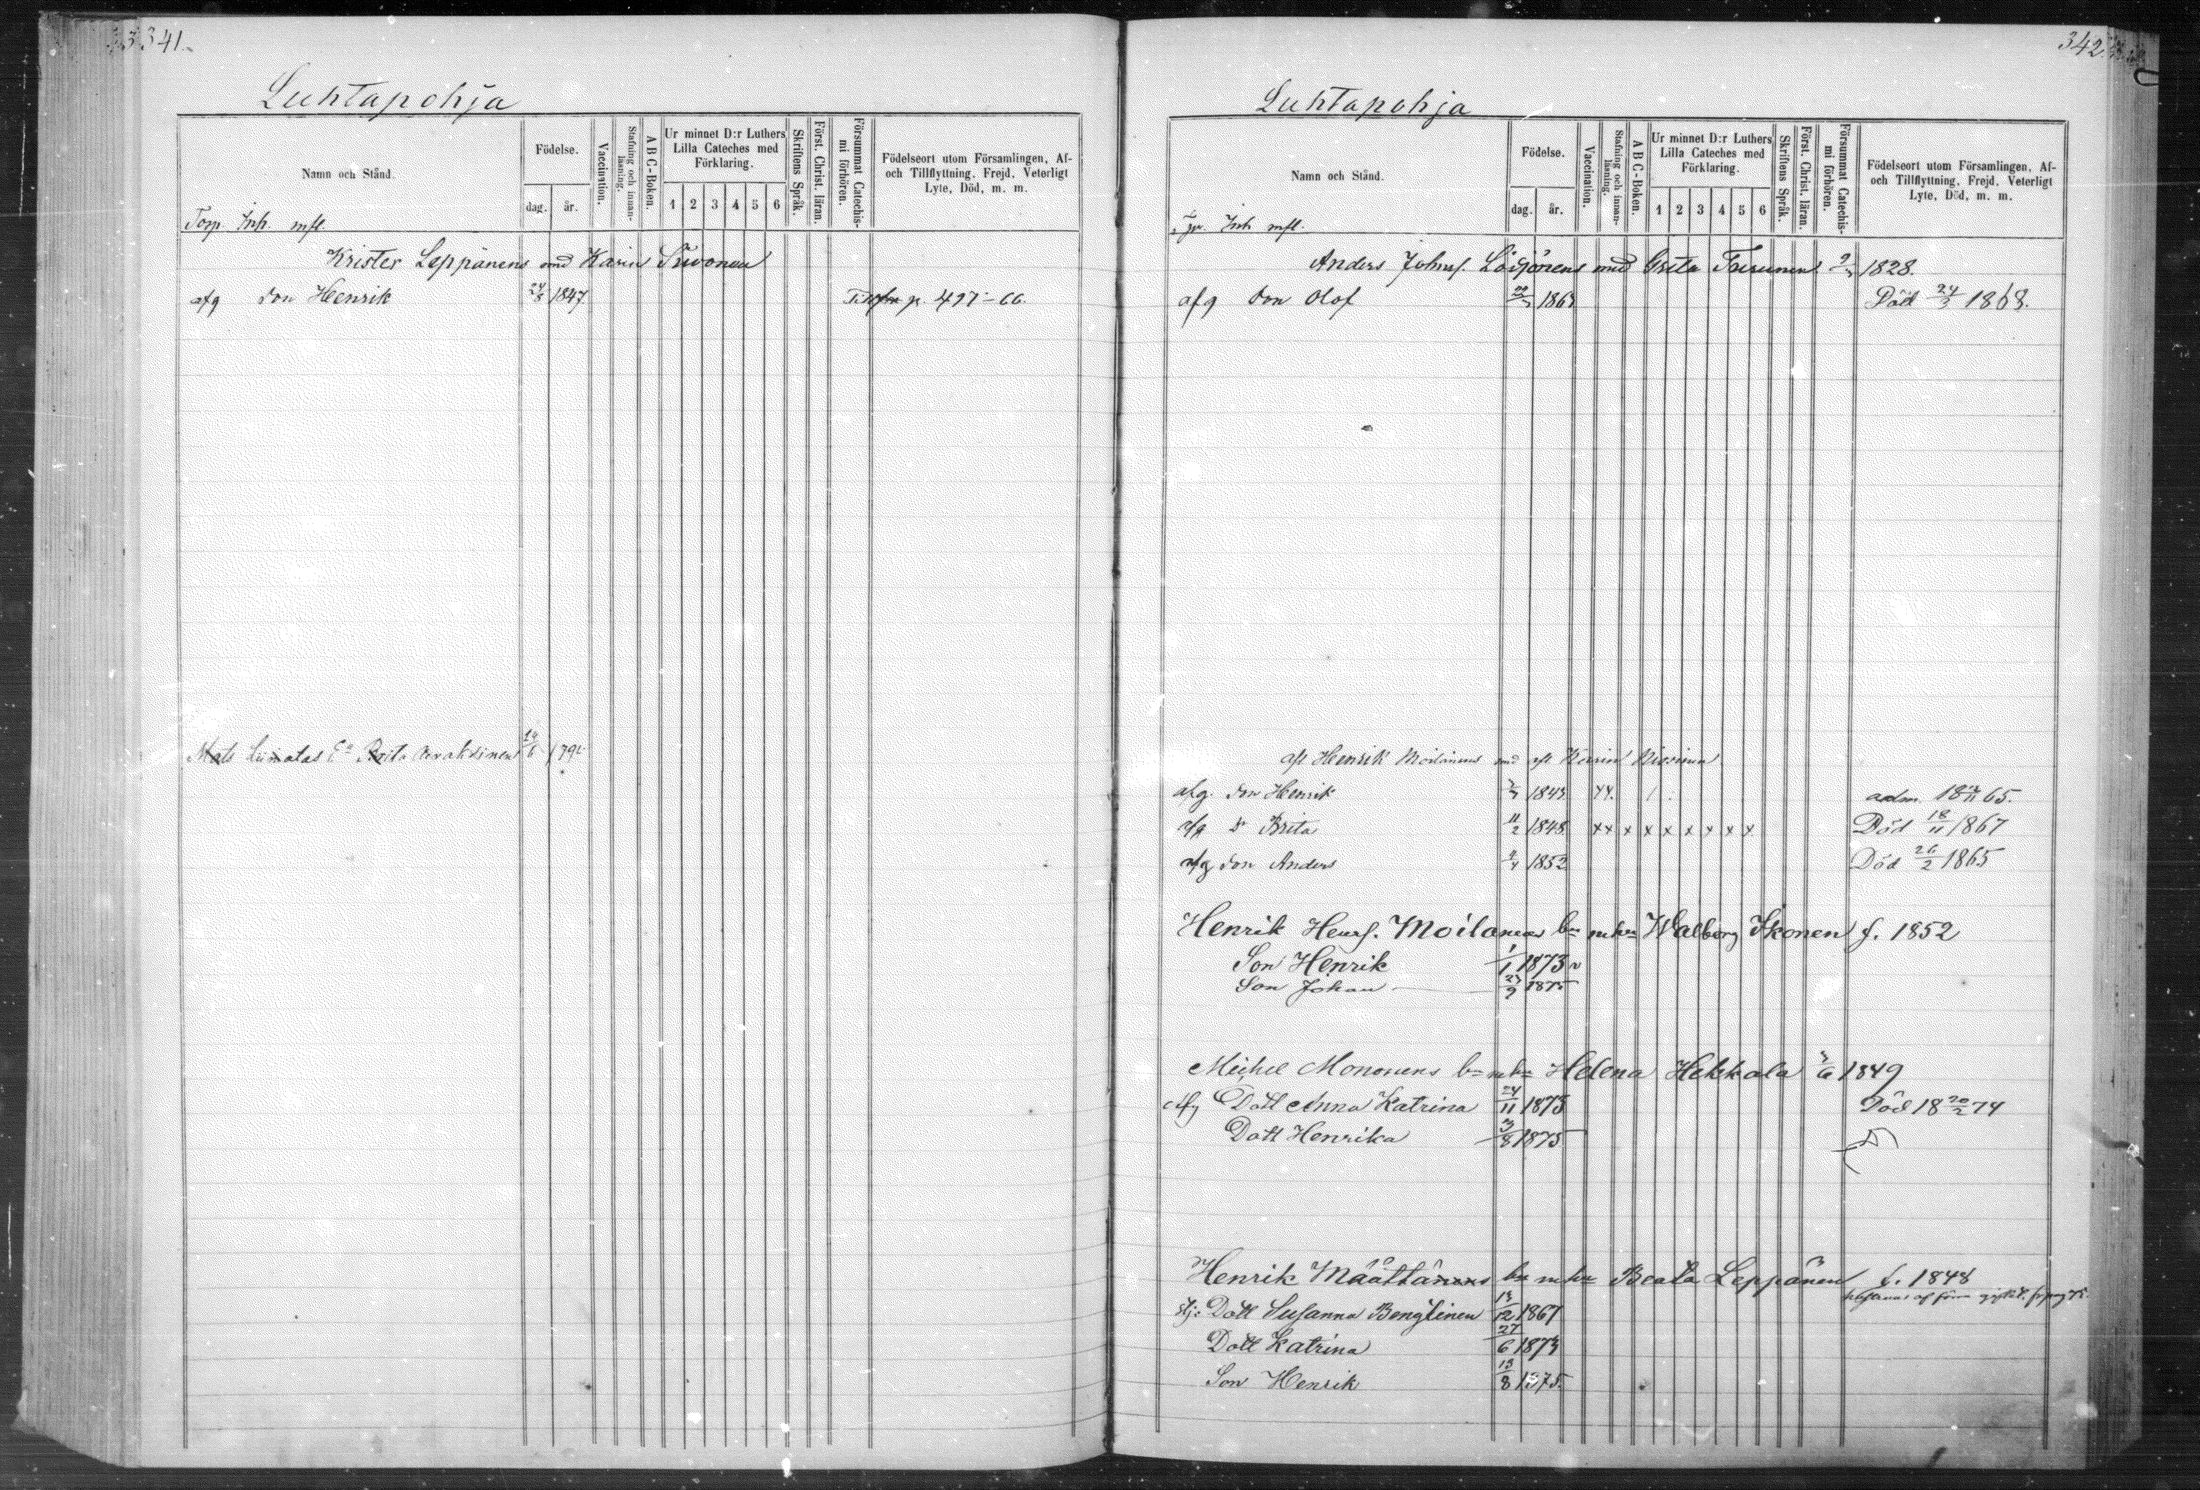 341.
Luhtapohja
Namn och Stånd.
Födelse.
dag. år.
Vaccination.
Stafning och innan-läsning.
A B C-Boken.
Ur minnet D:r Luthers Lilla Cateches med Förklaring.
1 2 3 4 5 6
Skriftens Språk.
Först. Christ. läran.
Försummat Catechis-mi förhören.
Födelseort utom Församlingen, Af- och Tillflyttning, Frejd, Veterligt Lyte, Död, m. m.
Torp. Inh. mfl.
Krister Leppänens med Karin
afg Son Henrik 24/8 1847 p. 497-66.
Mats E:a Brita 14/6
342.
Luhtapohja
Namn och Stånd.
Födelse.
dag. år.
Vaccination.
Stafning och innan-läsning.
A B C-Boken.
Ur minnet D:r Luthers Lilla Cateches med Förklaring.
1 2 3 4 5 6
Skriftens Språk.
Först. Christ. läran.
Försummat Catechis-mi förhören.
Födelseort utom Församlingen, Af- och Tillflyttning, Frejd, Veterligt Lyte, Död, m. m.
Inh mfl.
Anders Johnss. med Greta 1828.
afg Son Olof Död 24/3 1868.
aft Henrik Moilanens med aft Karin
afg. Son Henrik adm. 65.
afg D:r Brita 11/2 1848 x x x x x x x x x Död 18/11 1867
afg Son Anders 1852 Död 26/2 1865
Henrik Henrs. Moilanens b:n m h:u Walborg Ikonen f. 1852
Son Henrik 1/1 1873
Son Johan 23/9 1875
Michel Mononens b:n m h:u Helena Hekkala 1849
afg Dott Anna Katrina 24/11 1873 Död 18 20/2 74
Dott Henrika 3/8 1875
Henrik Määttänens b:n m h:u Beata Leppänen f. 1848
Dott Susanna Bengtinen 13/12 1867
Dott Katrina 27/6 1873
Son Henrik 13/8 1875.